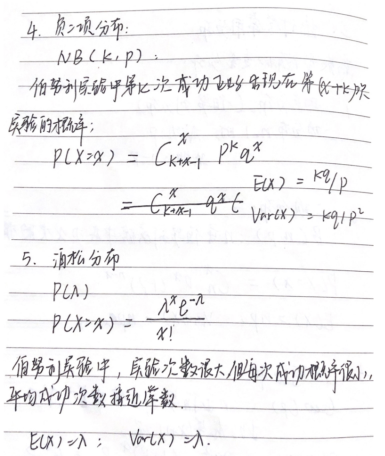 4. 负二项分布:
NB(K,P):
伯努利实验中第K次成功正好出现在第(x+k)次
实验的概率:
P(X=x) = C_{K+x-1}^{x} P^k q^x
E(x) = kq/p
Var(x) = kq/p²
5. 泊松分布
P(λ)
P(X=x) = λ^x e^{-λ} / x!
伯努利实验中,实验次数很大,但每次成功概率很小,
平均成功次数接近常数.
E(x)=λ; Var(x)=λ.